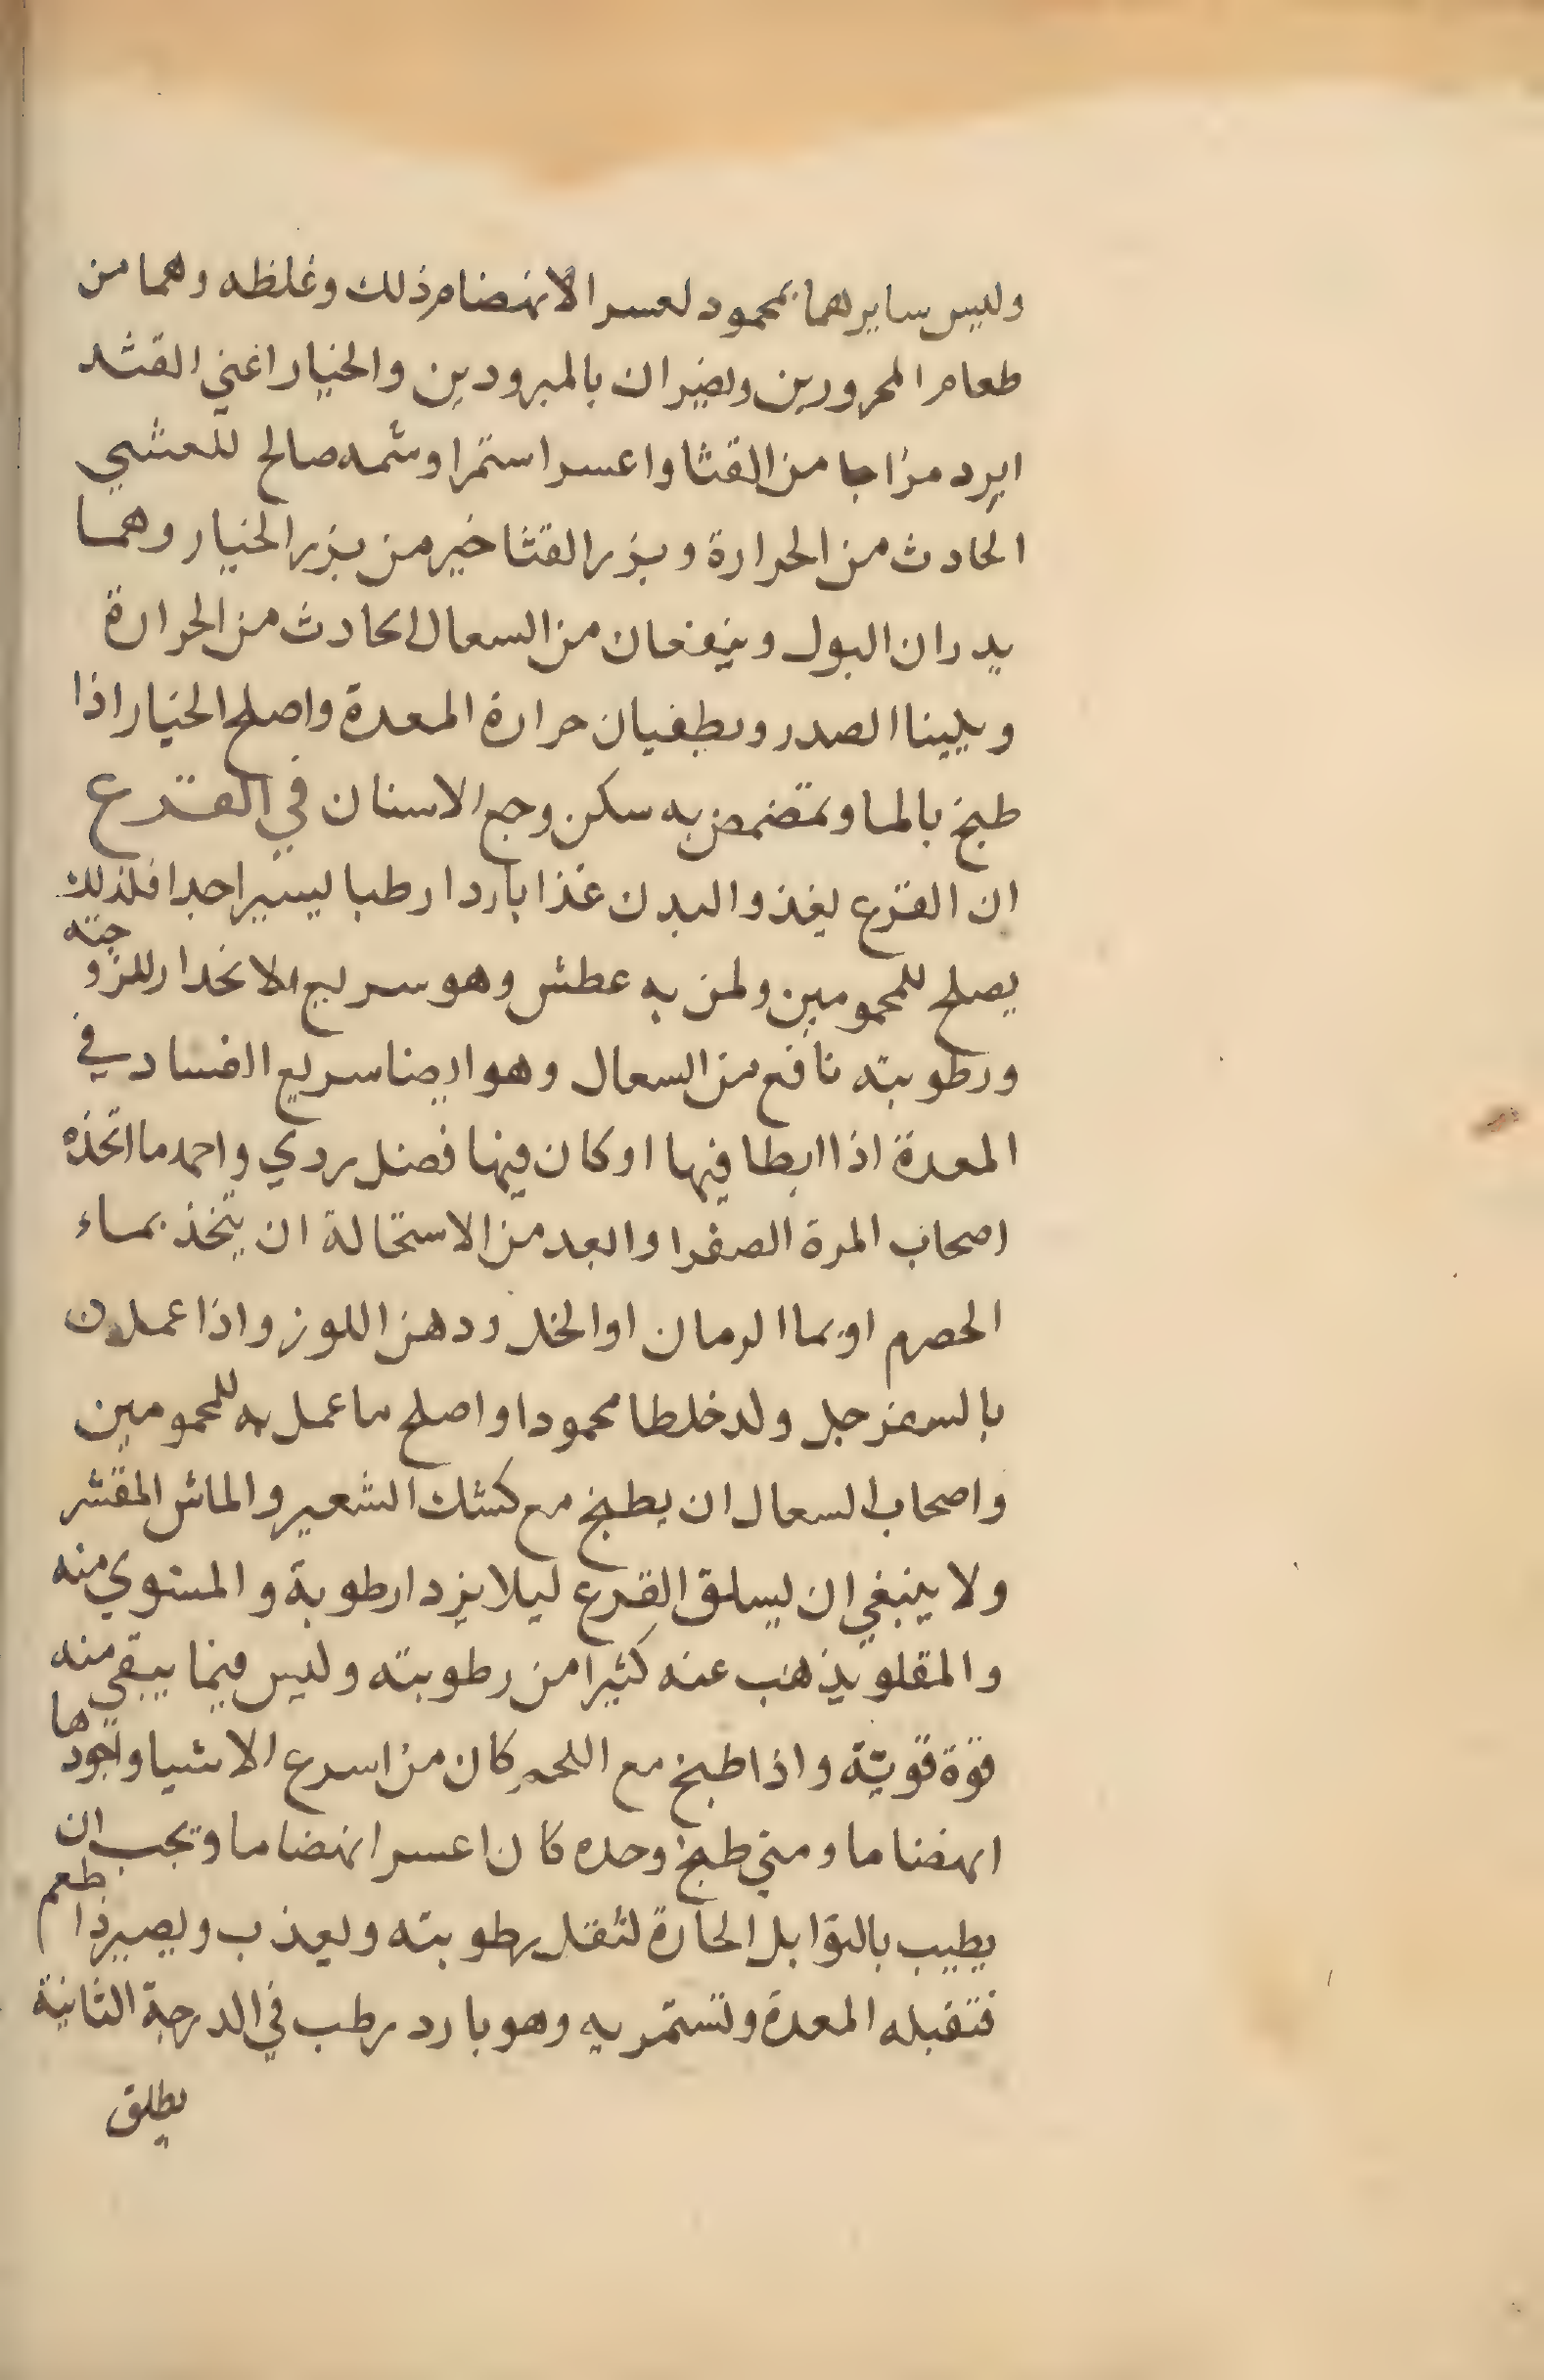 وليس سايرهما بمحمود لعسر الانهضام ذلك وغلظه وهما من
طعام المحرورين ويضران بالمبرودين والخيار اغني القثد
ابرد مزاجا من القثا واعسر استمرا وشمه صالح للغشي
الحادث من الحرارة وبزر القثا خير من بزر الخيار وهما
يدران البول وينفعان من السعال الحادث من الحرارة
ويلينا الصدر ويطفيان حرارة المعدة واصلح الخيار اذا
طبخ بالما وتمضمض به سكن وجع الاسنان في القرع
ان القرع يغذو البدن غذا باردا رطبا يسيرا جدا فلذلك
يصلح للمحمومين ولمن به عطش وهو سريع الانحدار للزوجته
ورطوبته نافع من السعال وهو ايضا سريع الفساد في
المعدة اذا ابطا فيها او كان فيها فضل ردي واحمد ما اتخذه
اصحاب المرة الصفرا وابعد من الاستحالة ان يتخذ بماء
الحصرم او بما الرمان او الخل ودهن اللوز واذا عمل
بالسفرجل ولد خلطا محمودا واصلح ما عمل به للمحمومين
واصحاب السعال ان يطبخ مع كشك الشعير والماش المقشر
ولا ينبغي ان يسلق القرع ليلا يزدا رطوبة والمشوي منه
والمقلو يذهب عنه كثيرا من رطوبته وليس فيما يبقي منه
قوة قوية واذا طبخ مع اللحم كان من اسرع الاشيا واجودها
انهضاما ومتي طبخ وحده كان اعسر انهضاما ويجب ان
يطيب بالتوابل الحارة لتقل رطوبته ويعذب ويصير ذا طعم
فتقبله المعدة وتستمريه وهو بارد رطب في الدرجة الثانية
يطلق